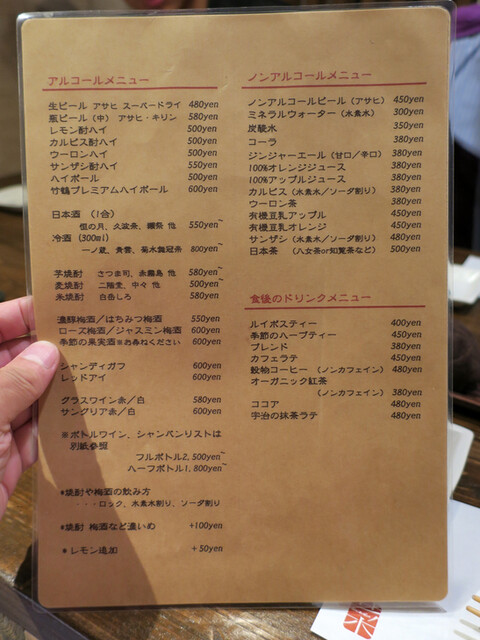 アルコールメニュー
生ビール アサヒ スーパードライ 480yen
瓶ビール（中） アサヒ・キリン 580yen
レモン酎ハイ 500yen
カルピス酎ハイ 500yen
ウーロンハイ 500yen
サンザシ酎ハイ 550yen
ハイボール 500yen
竹鶴プレミアムハイボール 600yen
日本酒 （1合）
恒の月、久波奈、纜祭 他 550yen~
冷酒（300ml）
一ノ蔵、貴雲、菊水無冠帝 800yen~
芋焼酎 さつま司、赤霧島 他 580yen~
麦焼酎 二階堂、中々 他 500yen~
米焼酎 白岳しろ 580yen
濃醇梅酒／はちみつ梅酒 550yen
ローズ梅酒／ジャスミン梅酒 600yen
季節の果実酒※お尋ねください 600yen~
シャンディガフ 600yen
レッドアイ 600yen
グラスワイン赤／白 580yen
サングリア赤／白 600yen
※ボトルワイン、シャンパンリストは
別紙参照
フルボトル2,500yen~
ハーフボトル1,800yen~
*焼酎や梅酒の飲み方
・・・ロック、水素水割り、ソーダ割り
*焼酎 梅酒など濃いめ +100yen
*レモン追加 +50yen
ノンアルコールメニュー
ノンアルコールビール（アサヒ） 450yen
ミネラルウォーター（水素水） 300yen
炭酸水 350yen
コーラ 380yen
ジンジャーエール（甘口／辛口） 380yen
100%オレンジジュース 380yen
100%アップルジュース 380yen
カルピス（水素水／ソーダ割り） 380yen
ウーロン茶 380yen
有機豆乳アップル 450yen
有機豆乳オレンジ 450yen
サンザシ（水素水／ソーダ割り） 480yen
日本茶 （八女茶or知覧茶など） 500yen
食後のドリンクメニュー
ルイボスティー 400yen
季節のハーブティー 450yen
ブレンド 380yen
カフェラテ 450yen
穀物コーヒー（ノンカフェイン） 480yen
オーガニック紅茶
（ノンカフェイン） 380yen
ココア 480yen
宇治の抹茶ラテ 480yen